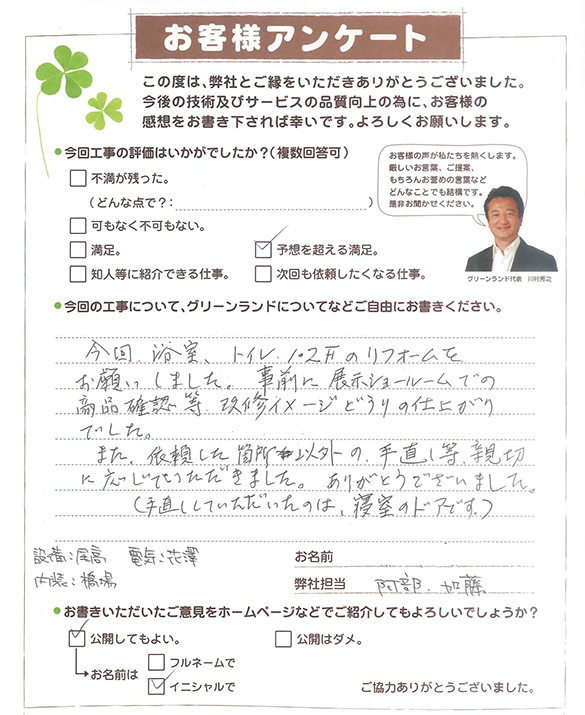 お客様アンケート
この度は、弊社とご縁をいただきありがとうございました。
今後の技術及びサービスの品質向上の為に、お客様の
感想をお書き下されば幸いです。よろしくお願いします。
今回工事の評価はいかがでしたか？（複数回答可）
不満が残った。
（どんな点で？：　　　）
可もなく不可もない。
満足。
予想を超える満足。
知人等に紹介できる仕事。
次回も依頼したくなる仕事。
お客様の声が私たちを熱くします。
厳しいお言葉、ご提案、
もちろんお誉めの言葉など
どんなことでも結構です。
是非お聞かせください。
グリーンランド代表　川村秀之
今回の工事について、グリーンランドについてなどご自由にお書きください。
今回、浴室、トイレ 1・2Fのリフォームを
お願いしました。事前に展示ショールームでの
商品確認等、改修イメージどうりの仕上がり
でした。
また、依頼した箇所以外の、手直し等、親切
に応じていただきました。ありがとうございました。
（手直ししていただいたのは、寝室のドアです。）
設備：尾高　電気：花澤
内装：橋場
お名前
弊社担当　阿部、加藤
お書きいただいたご意見をホームページなどでご紹介してもよろしいでしょうか？
公開してもよい。
公開はダメ。
お名前は
フルネームで
イニシャルで
ご協力ありがとうございました。